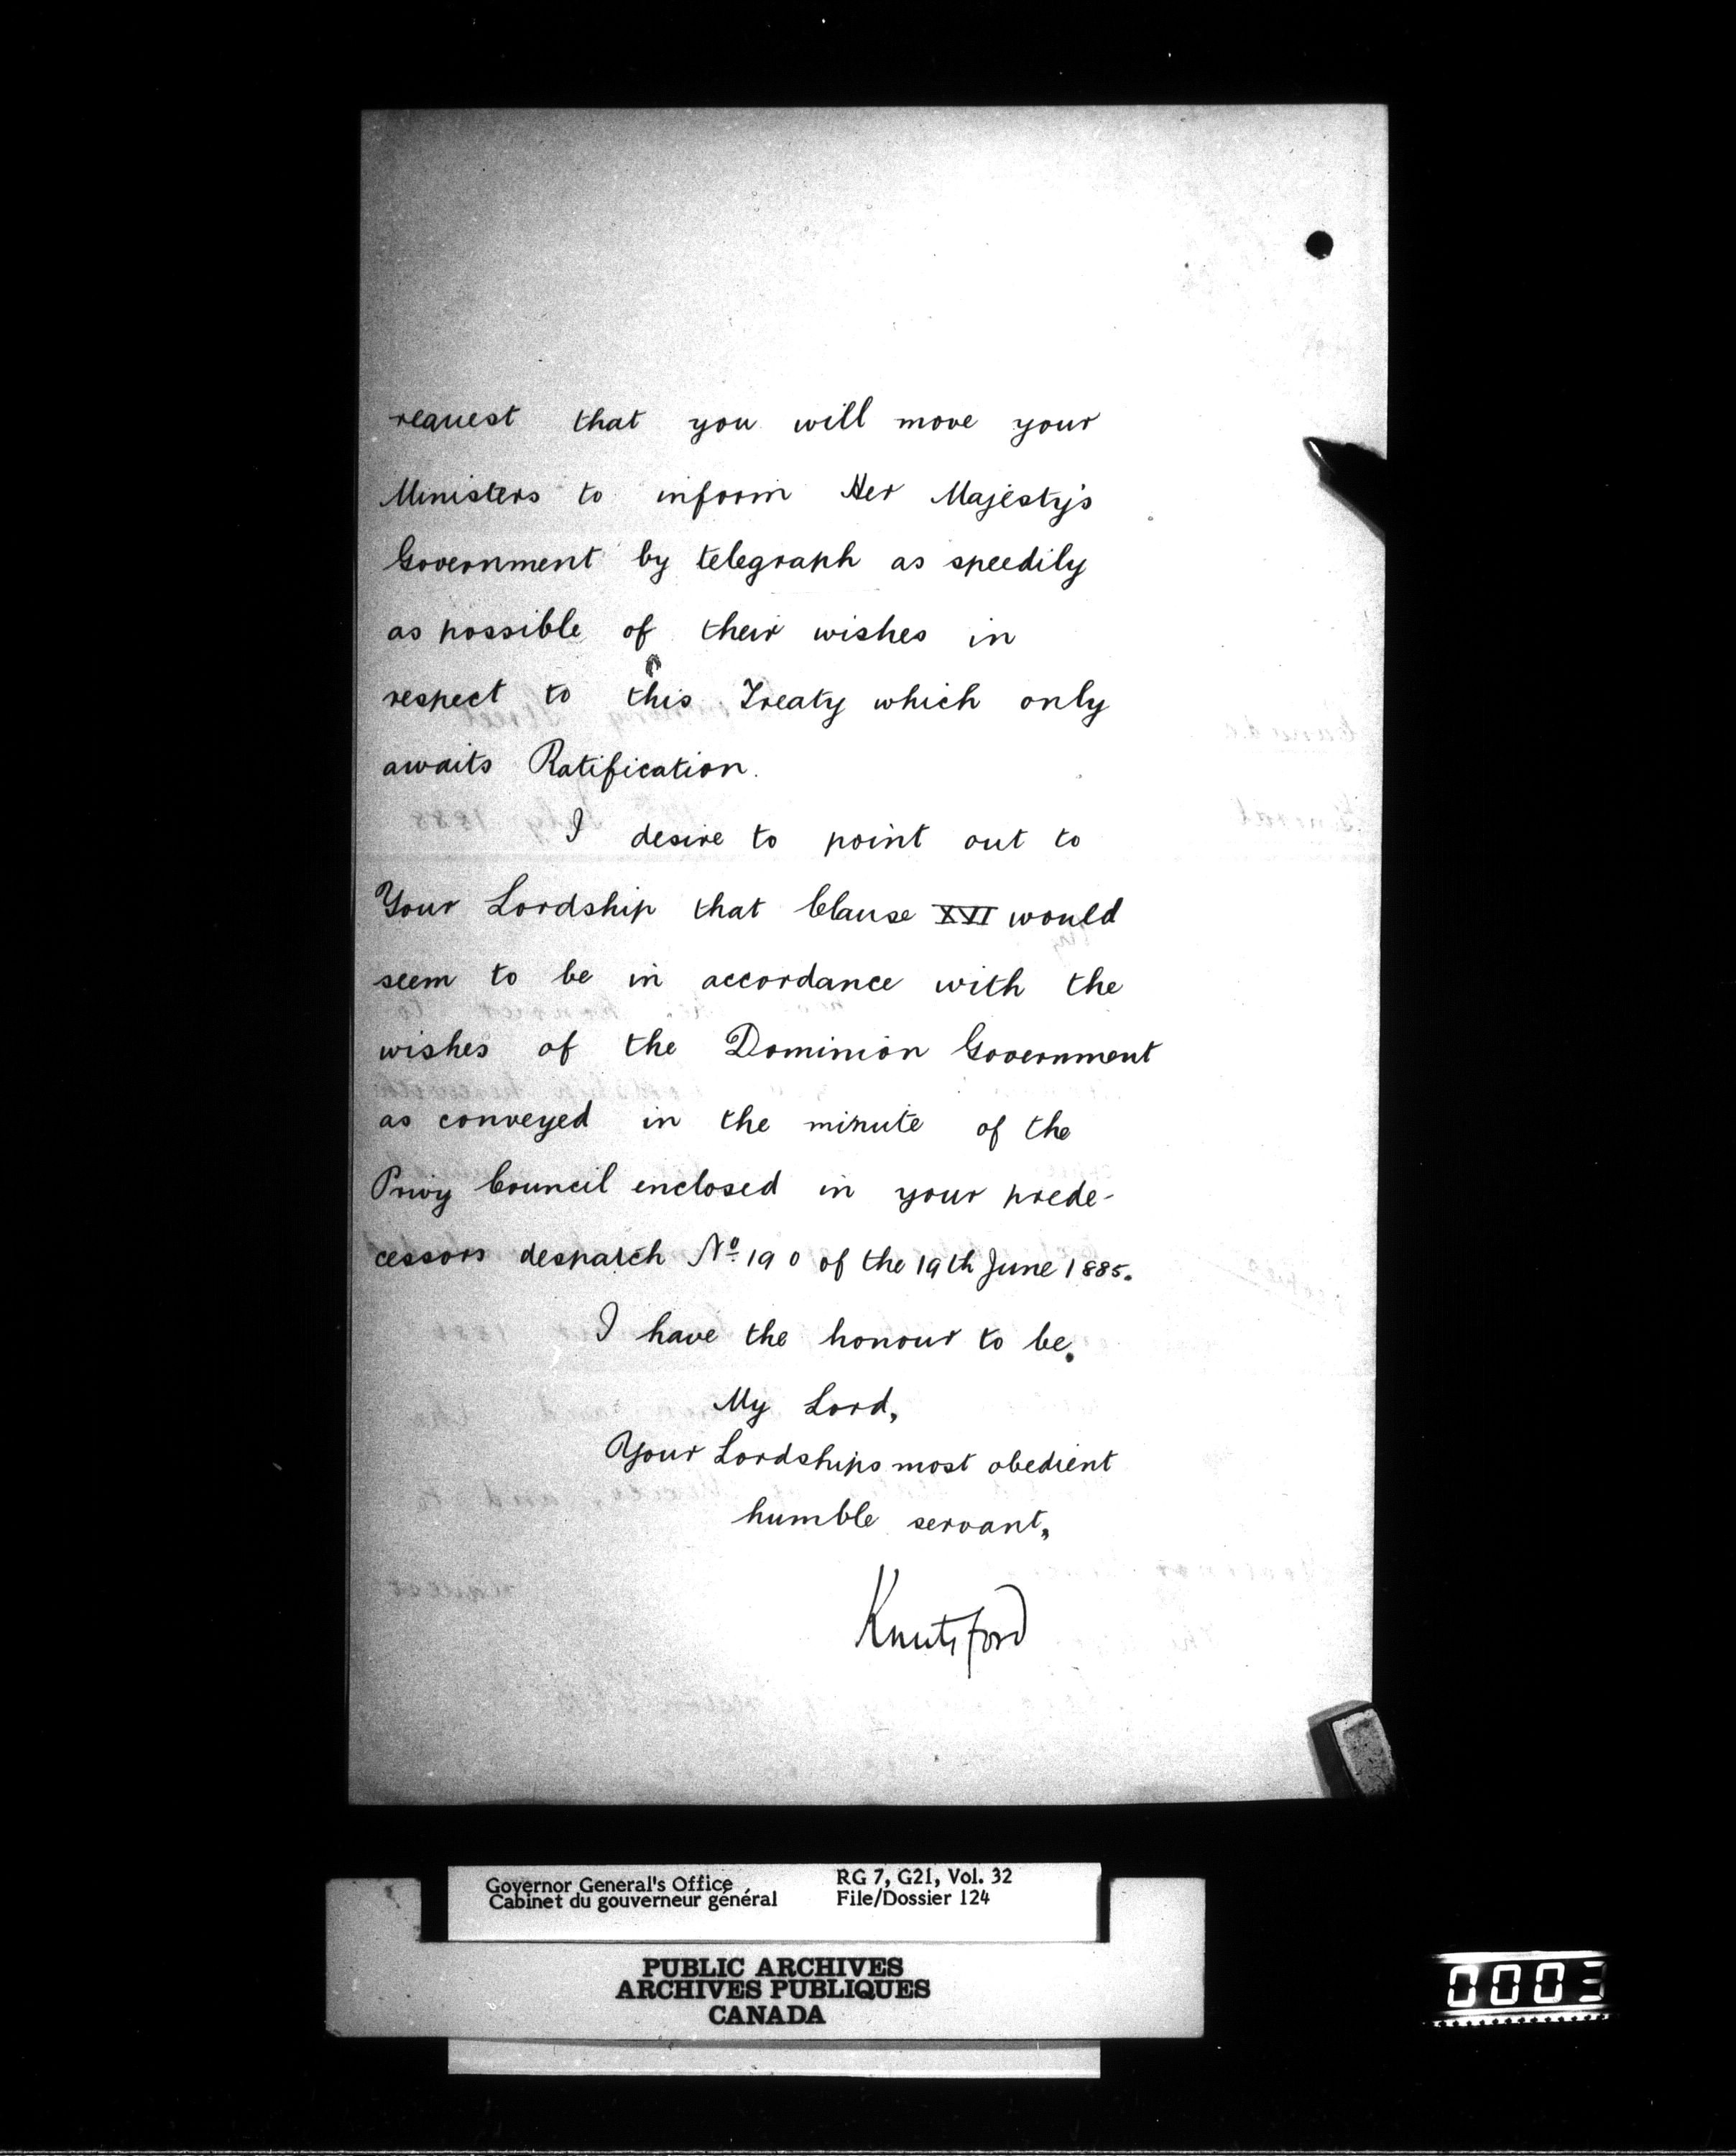 request that you will move your
Ministers to inform Her Majesty's
Government by telegraph as speedily
as possible of their wishes in
respect to this Treaty which only
awaits Ratification.
I desire to point out to
Your Lordship that Clause XVI would
seem to be in accordance with the
wishes of the Dominion Government
as conveyed in the minute of the
Privy Council enclosed in your prede-
cessors despatch No. 190 of the 19th June 1885.
I have the honour to be.
My Lord,
Your Lordships most obedient
humble servant,
Knutsford
Governor General's Office
Cabinet du gouverneur général
RG 7, G21, Vol. 32
File/Dossier 124
PUBLIC ARCHIVES
ARCHIVES PUBLIQUES
CANADA
0003